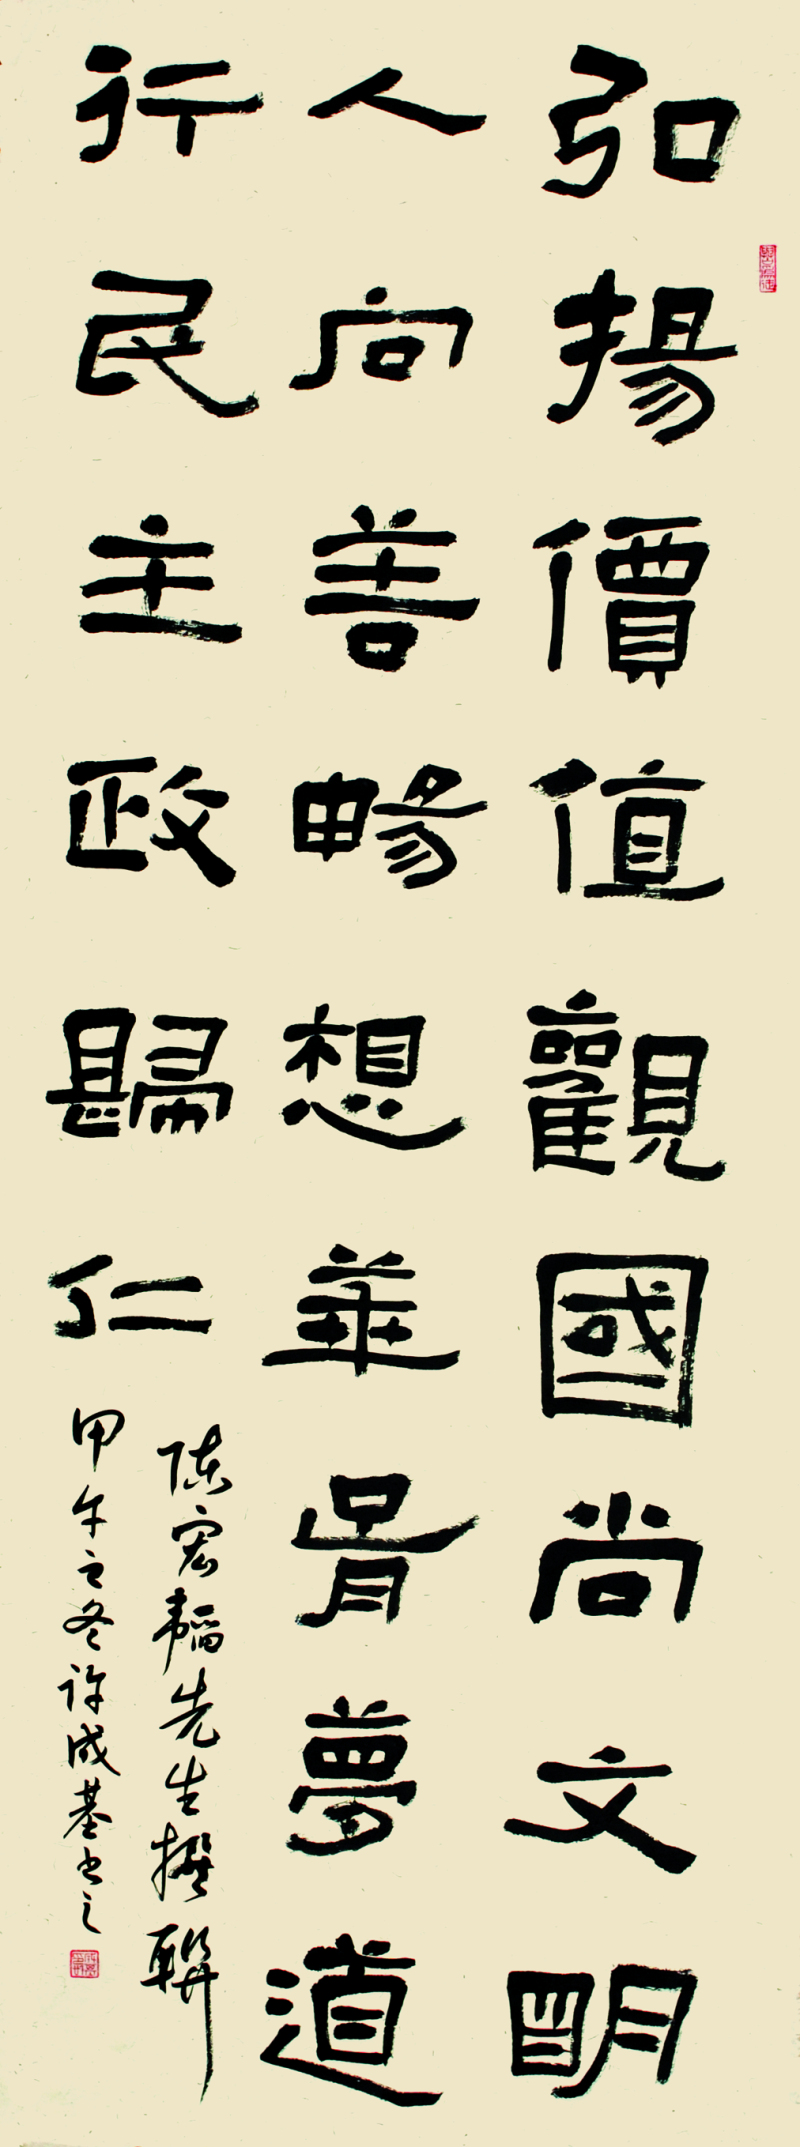 弘揚價值觀國尚文明
人向善暢想華胥夢道
行民主政歸仁
陈宏韜先生撰聯
甲午之冬许成基书之